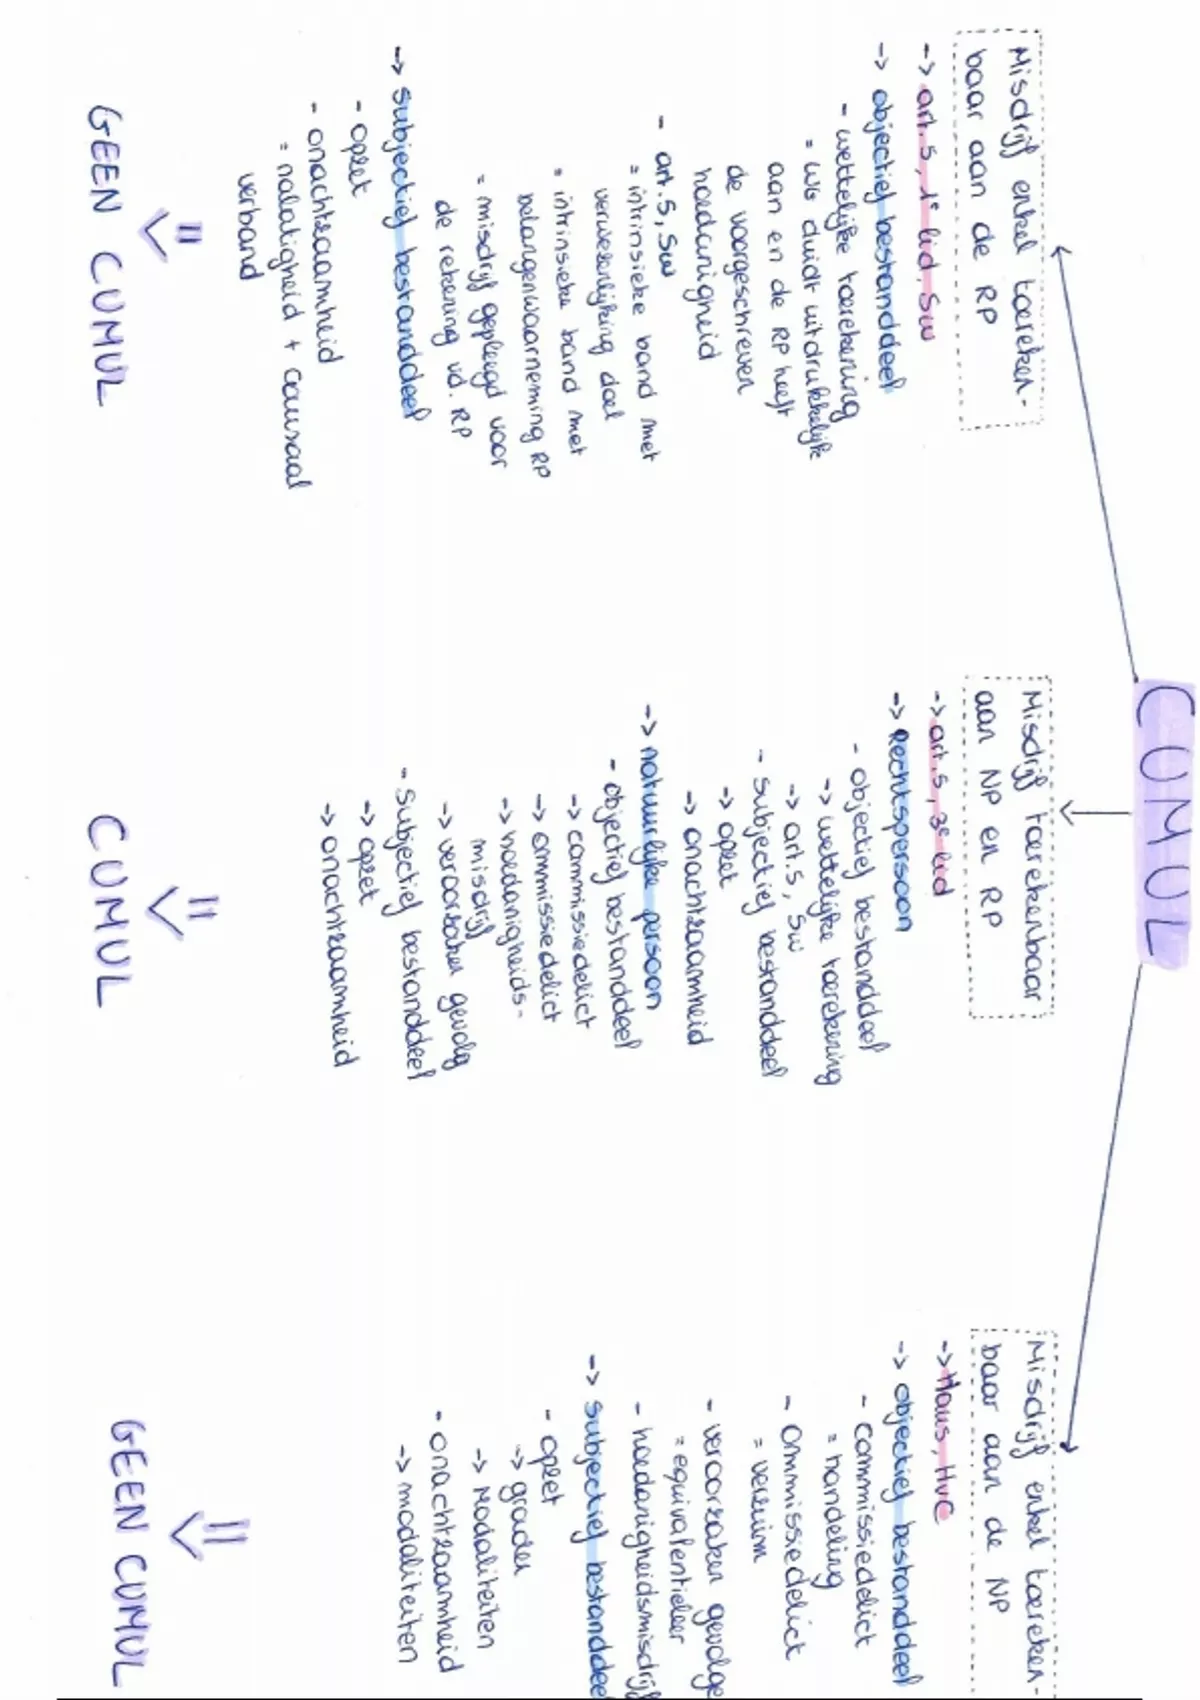 CUMUL
Misdrijf enkel toereken-
baar aan de RP
-> art. 5, 1e lid, Sw
-> objectief bestanddeel
- wettelijke toerekening
= WG duidt uitdrukkelijk
aan en de RP heeft
de voorgeschreven
hoedanigheid
- art. 5, Sw
= intrinsieke band met
verwezenlijking doel
= intrinsieke band met
belangenwaarneming RP
= misdrijf gepleegd voor
de rekening vd. RP
-> Subjectief bestanddeel
- opzet
- onachtzaamheid
= nalatigheid + causaal
verband
=>
GEEN CUMUL
Misdrijf toerekenbaar
aan NP en RP
-> art. 5, 3e lid
-> Rechtspersoon
- objectief bestanddeel
-> wettelijke toerekening
-> art. 5, Sw
- Subjectief bestanddeel
-> opzet
-> onachtzaamheid
-> natuurlijke persoon
- objectief bestanddeel
-> commissiedelict
-> ommissiedelict
-> hoedanigheids-
misdrijf
-> veroorzaken gevolg
- Subjectief bestanddeel
-> opzet
-> onachtzaamheid
=>
CUMUL
Misdrijf enkel toereken-
baar aan de NP
-> Haus, HvC
-> objectief bestanddeel
- commissiedelict
= handeling
- ommissiedelict
= verzuim
- veroorzaken gevolge
= equivalentieleer
- hoedanigheidsmisdrijf
-> Subjectief bestanddeel
- opzet
-> graden
-> Modaliteiten
- onachtzaamheid
-> modaliteiten
=>
GEEN CUMUL